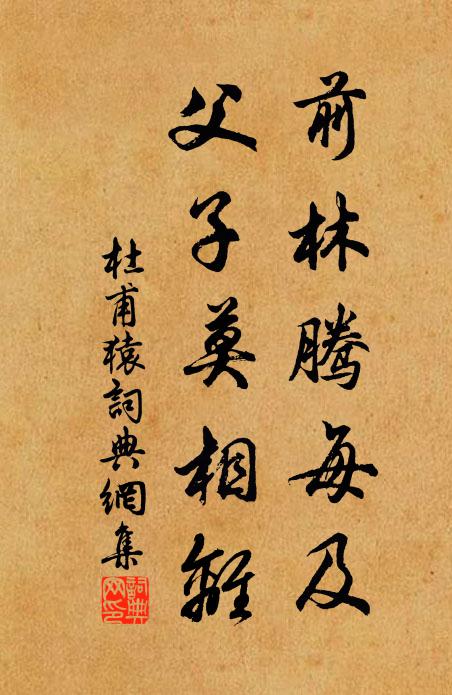 前林騰每及
父子莫相離
杜甫猿詞典網集
詞典網印